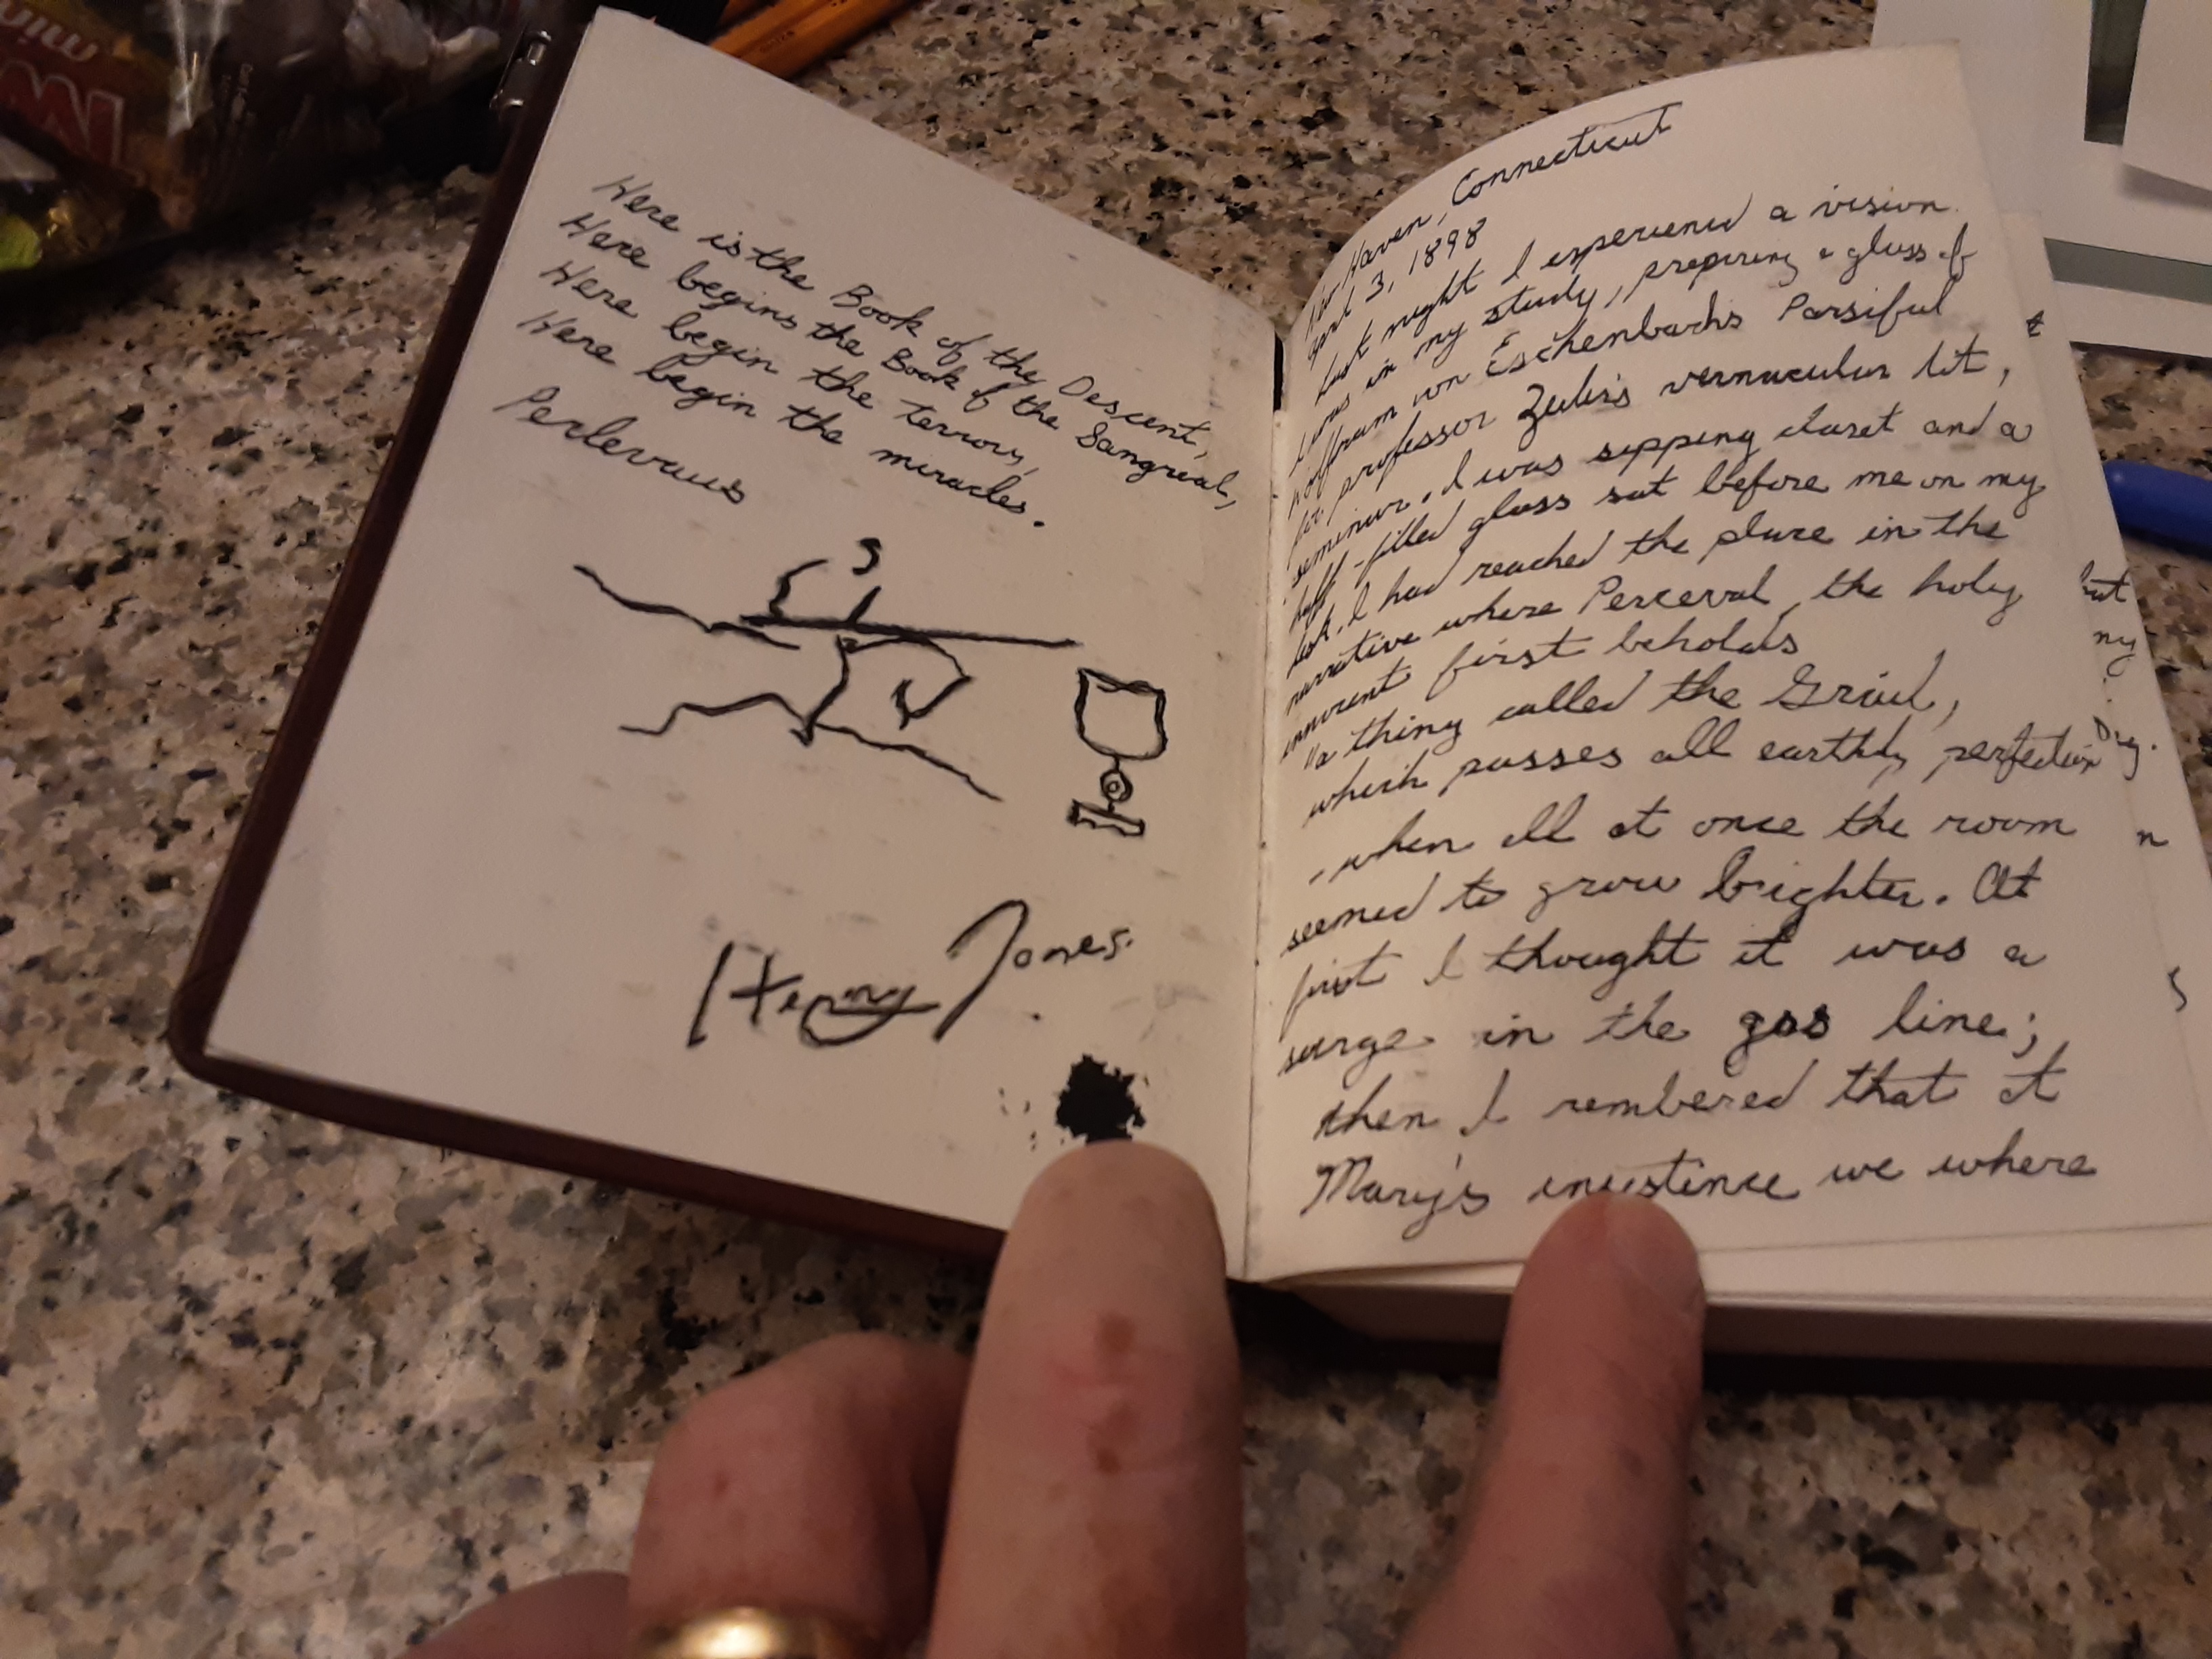 Here is the Book of the Descent,
Here begins the Book of the Sangreal,
Here begin the terrors,
Here begin the miracles.
Perlevaus
Henry Jones.
Haven, Connecticut
April 3, 1898
Last night I experienced a vision.
I was in my study, preparing a gloss of
Wolfram von Eschenbachs Parsifal
for professor Zeli's vernacular lit,
seminar. I was sipping claret and a
half-filled glass sat before me on my
desk. I had reached the place in the
narrative where Perceval, the holy
innocent first beholds
"a thing called the Grial,
which passes all earthly perfection
- when all at once the room
seemed to grow brighter. At
first I thought it was a
surge in the gas line;
then I rembered that at
Mary's insistince we where